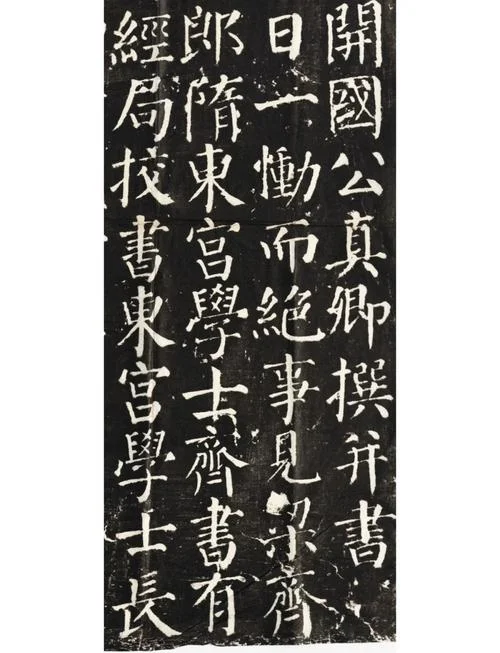 開國公真卿撰并書
日一慟而絕事見梁齊
郎隋東宮學士齊書有
經局挍書東宮學士長